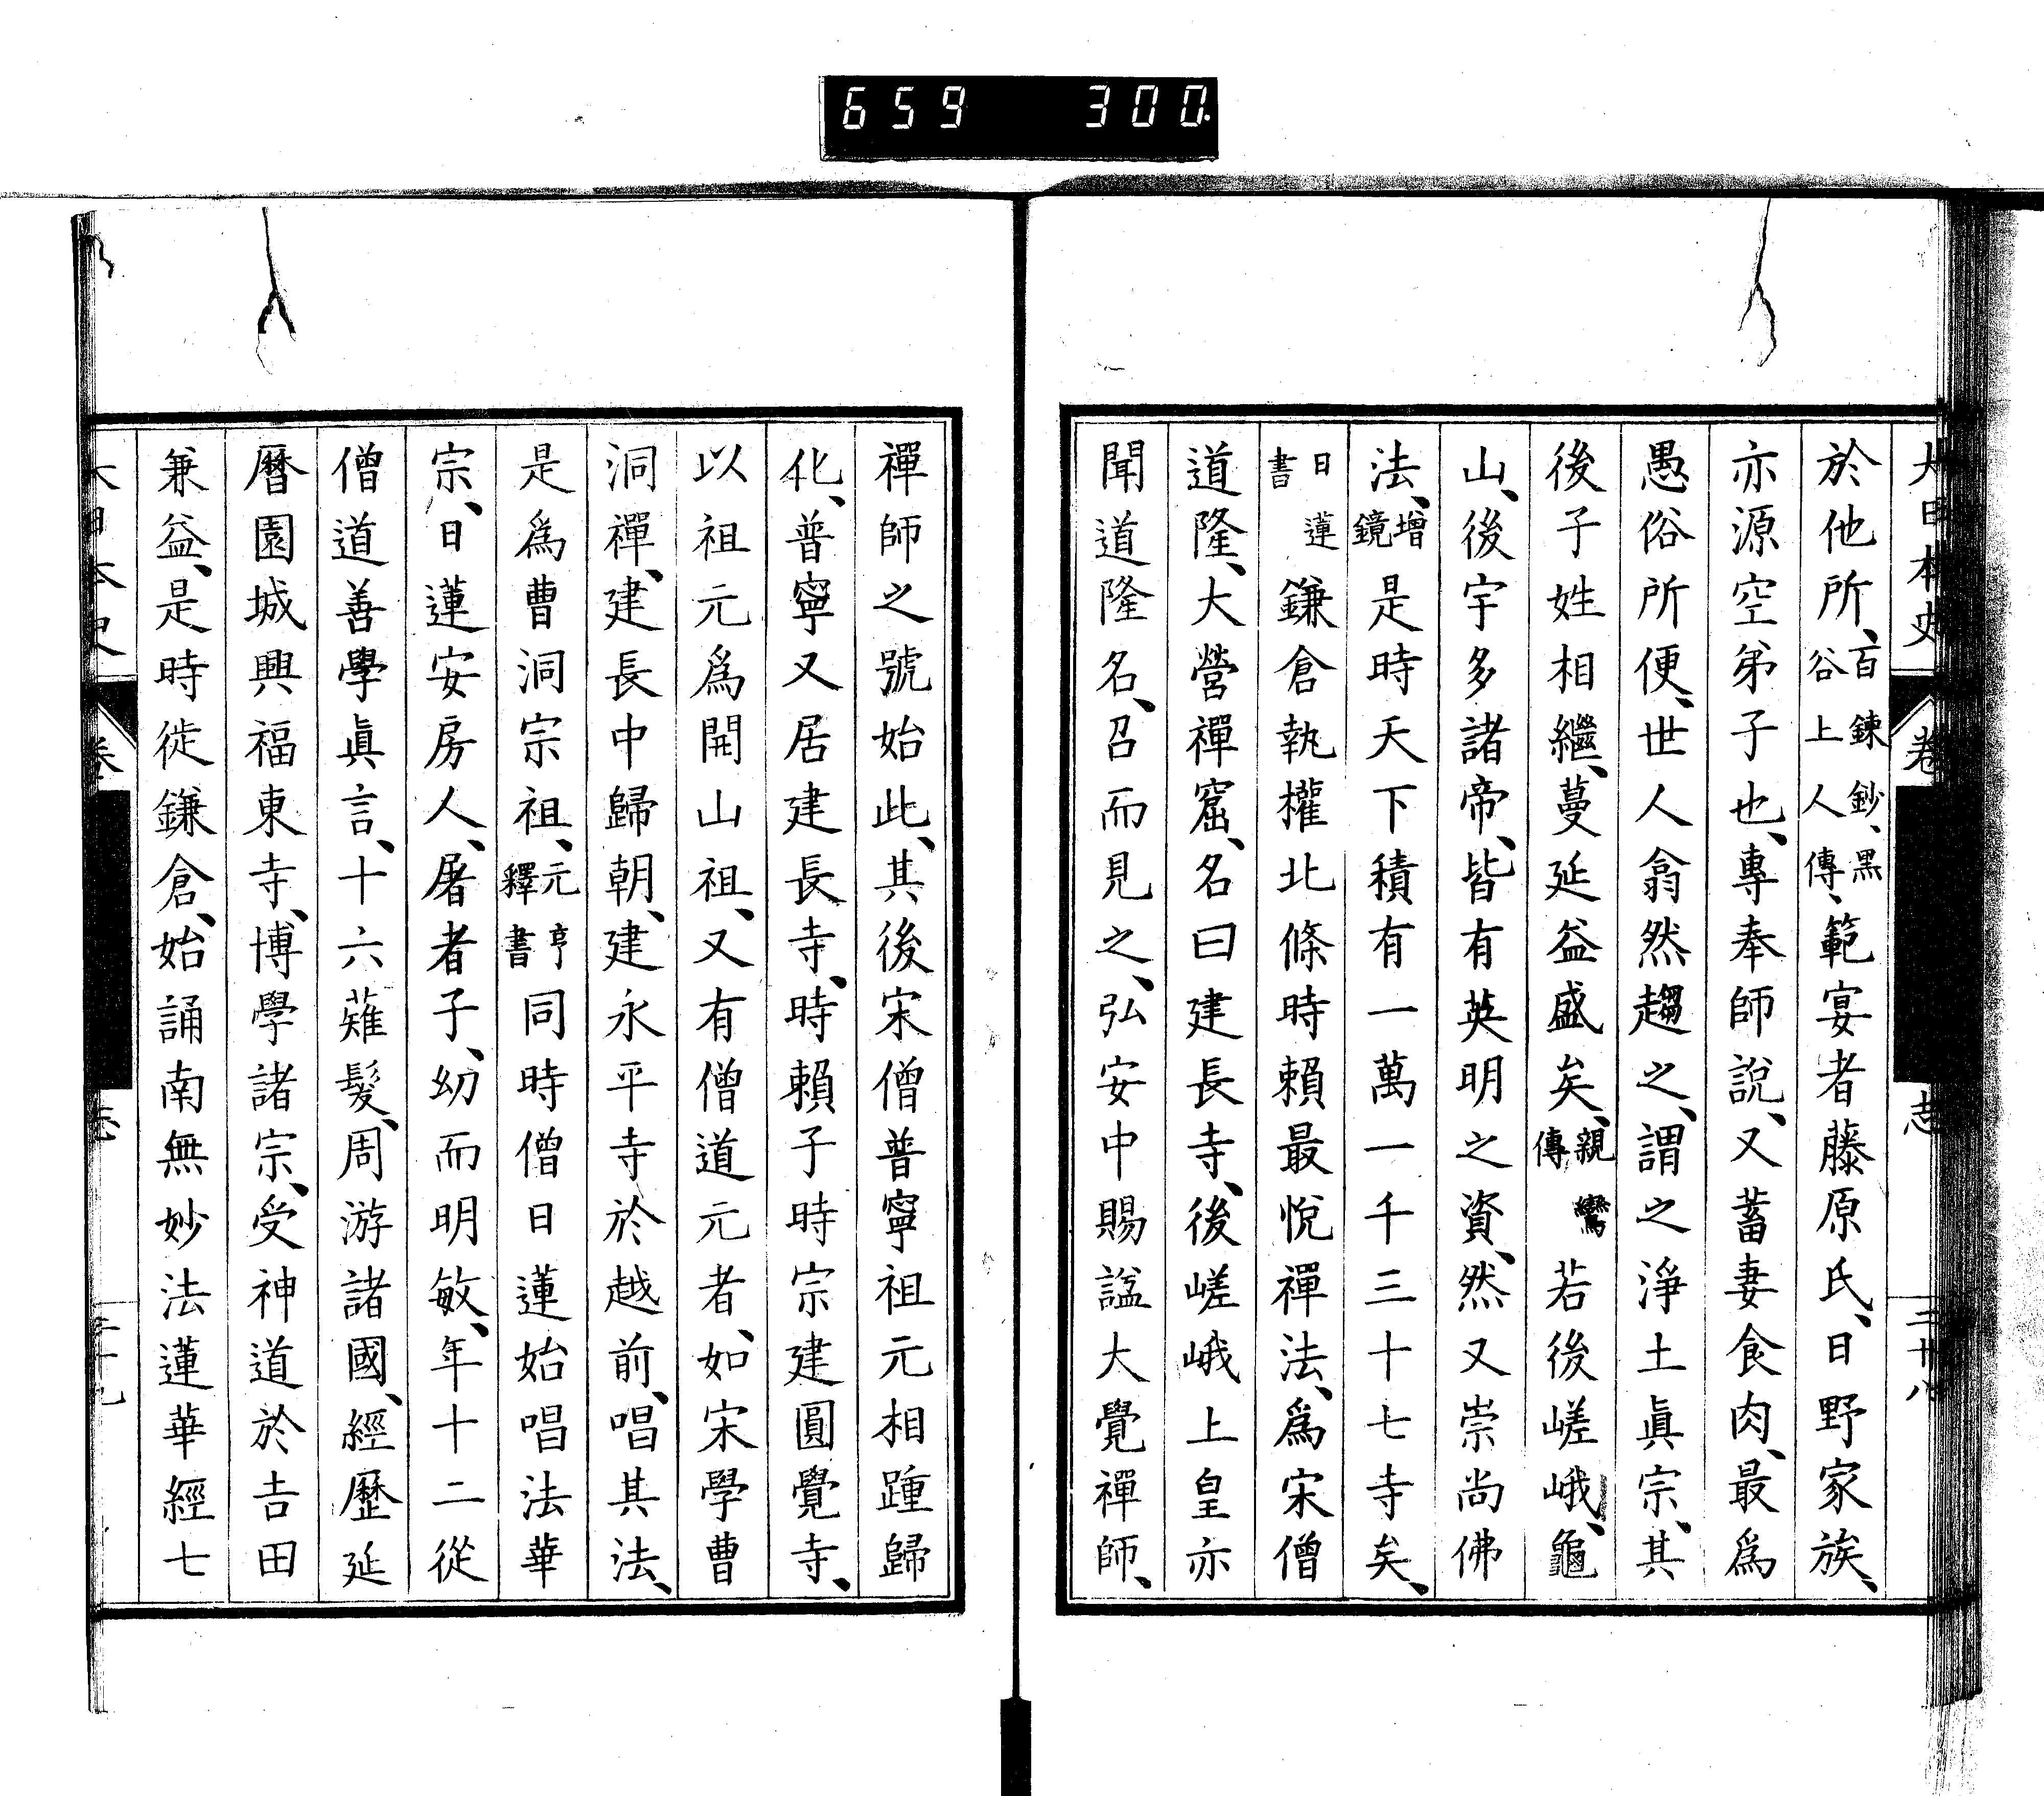 659 300
大日本史 卷 志 三十八
於他所、百鍊鈔、黑谷上人傳、範宴者藤原氏、日野家族、
亦源空弟子也、專奉師說、又蓄妻食肉、最爲
愚俗所便、世人翕然趨之、謂之淨土眞宗、其
後子姓相繼、蔓延益盛矣、親鸞傳若後嵯峨、龜
山、後宇多諸帝、皆有英明之資、然又崇尚佛
法、增鏡是時天下積有一萬一千三十七寺矣、
日蓮書鎌倉執權北條時賴最悅禪法、爲宋僧
道隆、大營禪窟、名曰建長寺、後嵯峨上皇亦
聞道隆名、召而見之、弘安中賜諡大覺禪師、
禪師之號始此、其後宋僧普寧祖元相踵歸
化、普寧又居建長寺、時賴子時宗建圓覺寺、
以祖元爲開山祖、又有僧道元者、如宋學曹
洞禪、建長中歸朝、建永平寺於越前、唱其法、
是爲曹洞宗祖、元亨釋書同時僧日蓮始唱法華
宗、日蓮安房人、屠者子、幼而明敏、年十二從
僧道善學眞言、十六薙髮、周游諸國、經歷延
曆園城興福東寺、博學諸宗、受神道於吉田
兼益、是時徙鎌倉、始誦南無妙法蓮華經七
大日本史 卷 志 三十九